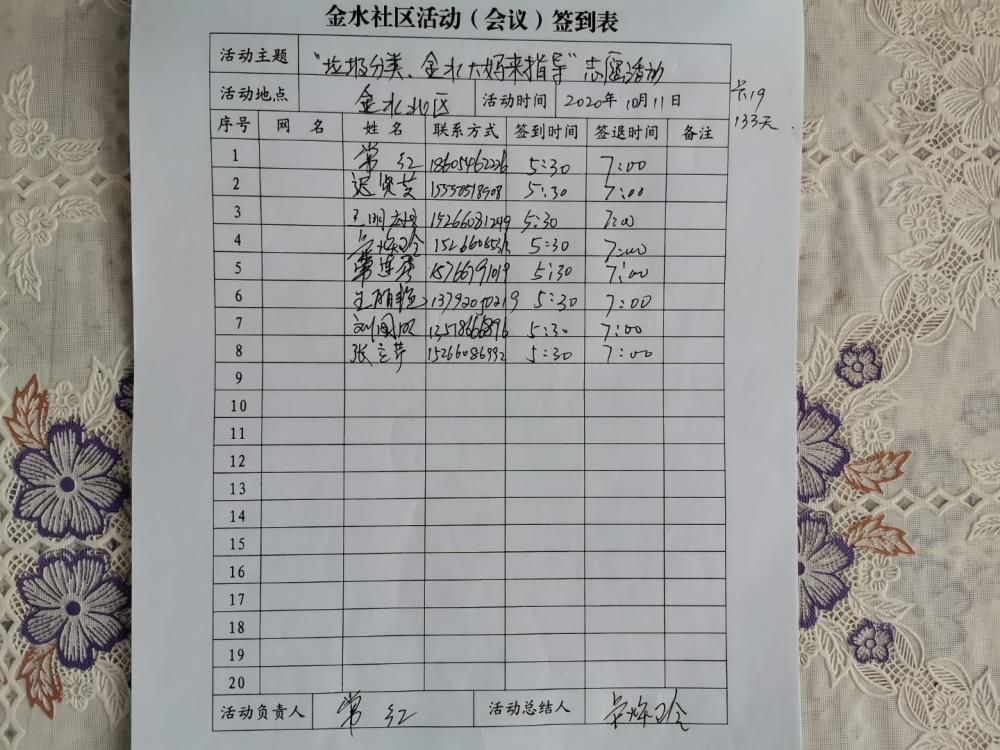 金水社区活动（会议）签到表
活动主题 "垃圾分类、金水大妈来指导"志愿活动
活动地点 金水社区 活动时间 2020年10月11日
133天
序号 网 名 姓 名 联系方式 签到时间 签退时间 备注
1 常红 18605462226 5:30 7:00
2 迟贤芝 15550518908 5:30 7:00
3 15266081249 5:30 7:00
4 5:30 7:00
5 常莲秀 15766791019 5:30 7:00
6 王丽艳 5:30 7:00
7 5:30 7:00
8 张立芹 15266086992 5:30 7:00
9
10
11
12
13
14
15
16
17
18
19
20
活动负责人 常红 活动总结人